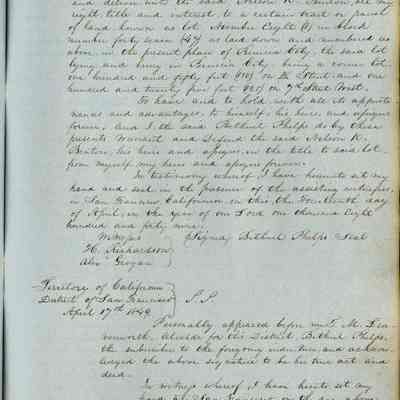 and deliver unto the said Nelson R. Benton, all my
right title and interest, to a certain tract or parcel
of land known as lot Number Eight (8) in block
number forty seven (47) as laid down and numbered as
above in the present plan of Benicia City, the said lot
lying and being in Benicia City being a corner lot
one hundred and fifty feet (150) on Street and one
hundred and twenty five feet (125) on 7th Street West.
To have and to hold with all its appurte
nances and advantages, to himself, his heirs, and assigns
forever. And I the said Bethuel Phelps do by these
presents Warrant and Defend the said Nelson R.
Benton, his heirs and assigns, in the title to said lot,
from myself my heirs and assigns forever.
In testimony whereof I have hereunto set my
hand and seal in the presence of the assisting witnesses,
in San Francisco California, on this, the day
of April, in the year of our Lord one thousand Eight
hundred and forty nine.
Witness Signed Bethuel Phelps Seal
H. Richardson
Alex Grogan
Territory of California
District of San Francisco S.S.
April 17th 1849
Personally appeared before me T. M. Lea
venworth, Alcalde for this District, Bethuel Phelps,
the subscriber to the foregoing indenture, and acknow
ledged the above signature to be his true act and
deed.
In witness whereof, I have hereto set my
hand at San Francisco on the above